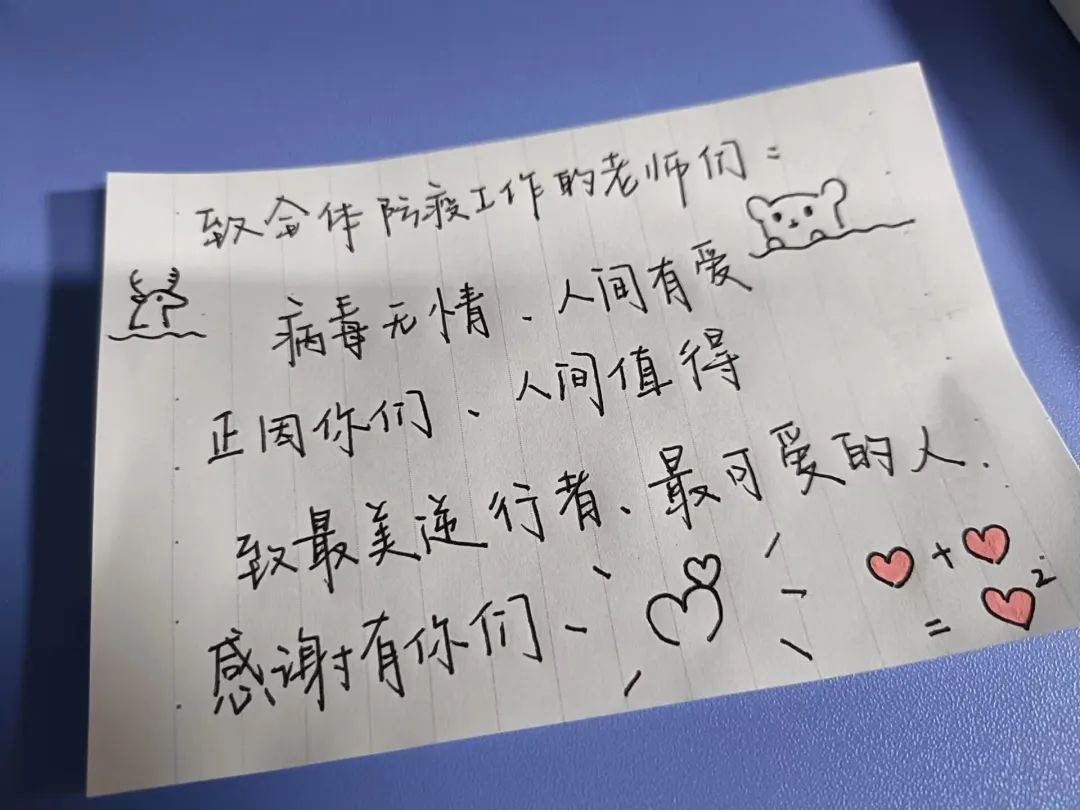 致全体防疫工作的老师们：
病毒无情、人间有爱
正因你们、人间值得
致最美逆行者、最可爱的人.
感谢有你们、
+
= 2